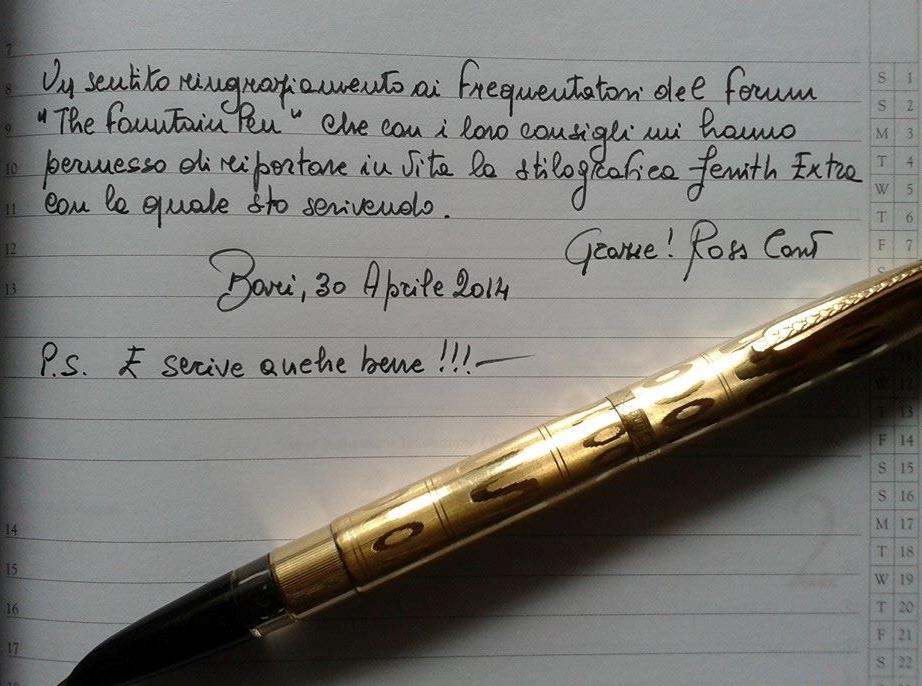 Un sentito ringraziamento ai frequentatori del forum
"The Fountain Pen" che con i loro consigli mi hanno
permesso di riportare in vita la stilografica Zenith Extra
con la quale sto scrivendo.
Grazie! Ross Cont
Bari, 30 Aprile 2014
P.S. E scrive anche bene !!!
7
8
9
10
11
12
13
14
15
16
17
18
S 1
S 2
M 3
T 4
W 5
T 6
F 7
S
T 13
F 14
S 15
S 16
M 17
T 18
W 19
T 20
F 21
S 22